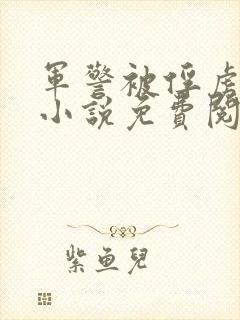 軍警被俘虜
小說免費閱
紫魚兒